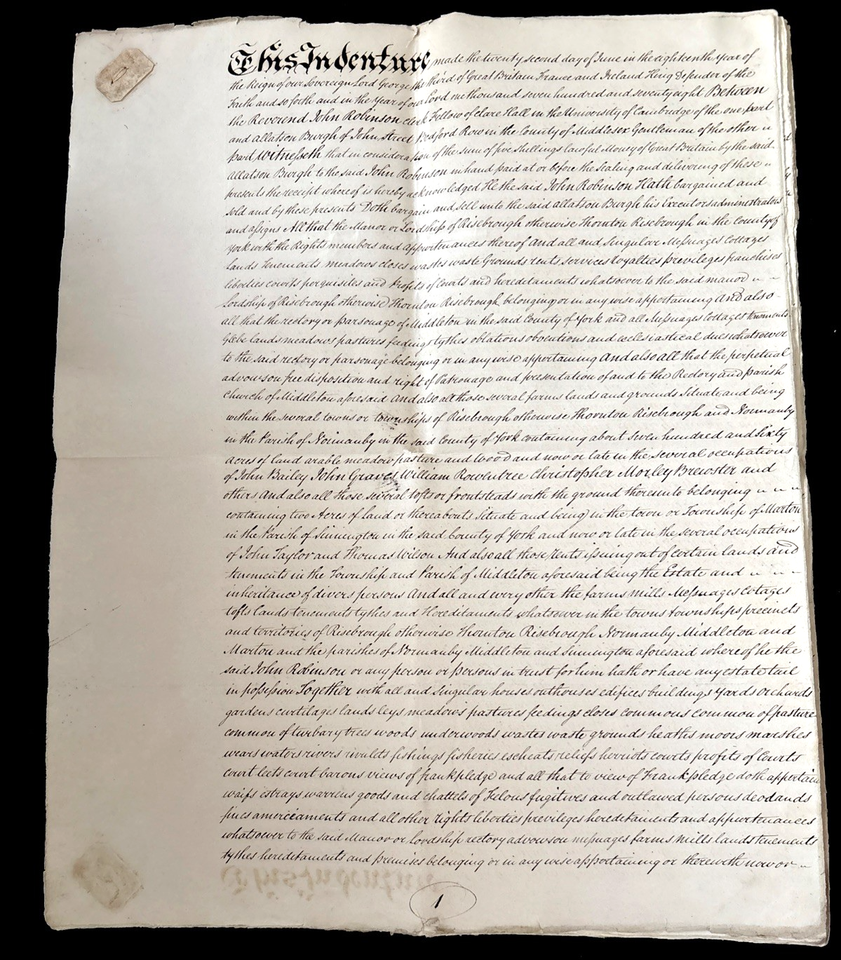 This Indenture made the twenty second day of June in the eighteenth Year of
the Reign of our Sovereign Lord George the third of Great Britain France and Ireland King Defender of the
Faith and so forth and in the Year of our Lord one thousand seven hundred and seventy eight Between
the Reverend John Robinson clerk Fellow of Clare Hall in the University of Cambridge of the one part
and Allatson Burgh of John Street Bedford Row in the County of Middlesex Gentleman of the other
part Witnesseth that in consideration of the sum of five shillings lawful Money of Great Britain by the said
Allatson Burgh to the said John Robinson in hand paid at or before the Sealing and delivering of these
presents the receipt whereof is hereby acknowledged He the said John Robinson Hath bargained and
sold and by these presents Doth bargain and sell unto the said Allatson Burgh his Executors administrators
and assigns All that the Manor or Lordship of Risebrough otherwise Thornton Risebrough in the County of
York with the Rights members and appurtenances thereof And all and Singular Messuages Cottages
lands tenements meadows closes wastes waste Grounds rents services Royalties privileges franchises
liberties courts perquisites and Profits of Courts and heredetaments whatsoever to the said manor or
Lordship of Risebrough otherwise Thornton Risebrough belonging or in any wise appertaining And also
all that the rectory or parsonage of Middleton in the said County of York and all Messuages Cottages tenements
Glebe lands meadows pastures feedings tythes oblations obventions and eclesiastical dues whatsoever
to the said rectory or parsonage belonging or in any wise appertaining And also all that the perpetual
advowson free disposition and right of Patronage and presentation of and to the Rectory and parish
church of Middleton aforesaid And also all those several farms lands and grounds Situate and being
within the several towns or townships of Risebrough otherwise Thornton Risebrough and Normanby
in the Parish of Normanby in the said County of York containing about seven hundred and sixty
acres of land arable meadow pasture and wood and now or late in the several occupations
of John Bailey John Graves William Rowntree Christopher Morley Brewster and
others And also all those several tofts or frontsteads with the ground thereunto belonging
containing two Acres of land or thereabouts Situate and being in the town or Township of Marton
in the Parish of Sinnington in the said County of York and now or late in the several occupations
of John Taylor and Thomas Wilson And also all those rents issuing out of certain lands and
tenements in the Township and Parish of Middleton aforesaid being the Estate and
inheritance of divers persons And all and every other the farms mills Messuages cotages
tofts lands tenements tythes and Heredetaments whatsoever in the towns townships precincts
and territories of Risebrough otherwise Thornton Risebrough Normanby Middleton and
Marton and the parishes of Normanby Middleton and Sinnington aforesaid whereof he the
said John Robinson or any person or persons in trust for him hath or have any estate tail
in possession Together with all and singular houses outhouses edifices buildings yards orchards
gardens curtilages lands leys meadows pastures feedings closes commons common of pasture
common of turbary trees woods underwoods wastes waste grounds heaths moors marshes
wears waters rivers rivulets fishings fisheries escheats reliefs herriots courts profits of Courts
court leets court barons views of frankpledge and all that to view of Frankpledge doth appertain
waifs estrays warrens goods and chattels of Felons fugitives and outlawed persons deodands
fines amerciaments and all other rights liberties previleges heredetaments and appurtenances
whatsoever to the said Manor or lordship rectory advowson messuages farms mills lands tenements
tythes heredetaments and premises belonging or in any wise appertaining or therewith now or
1